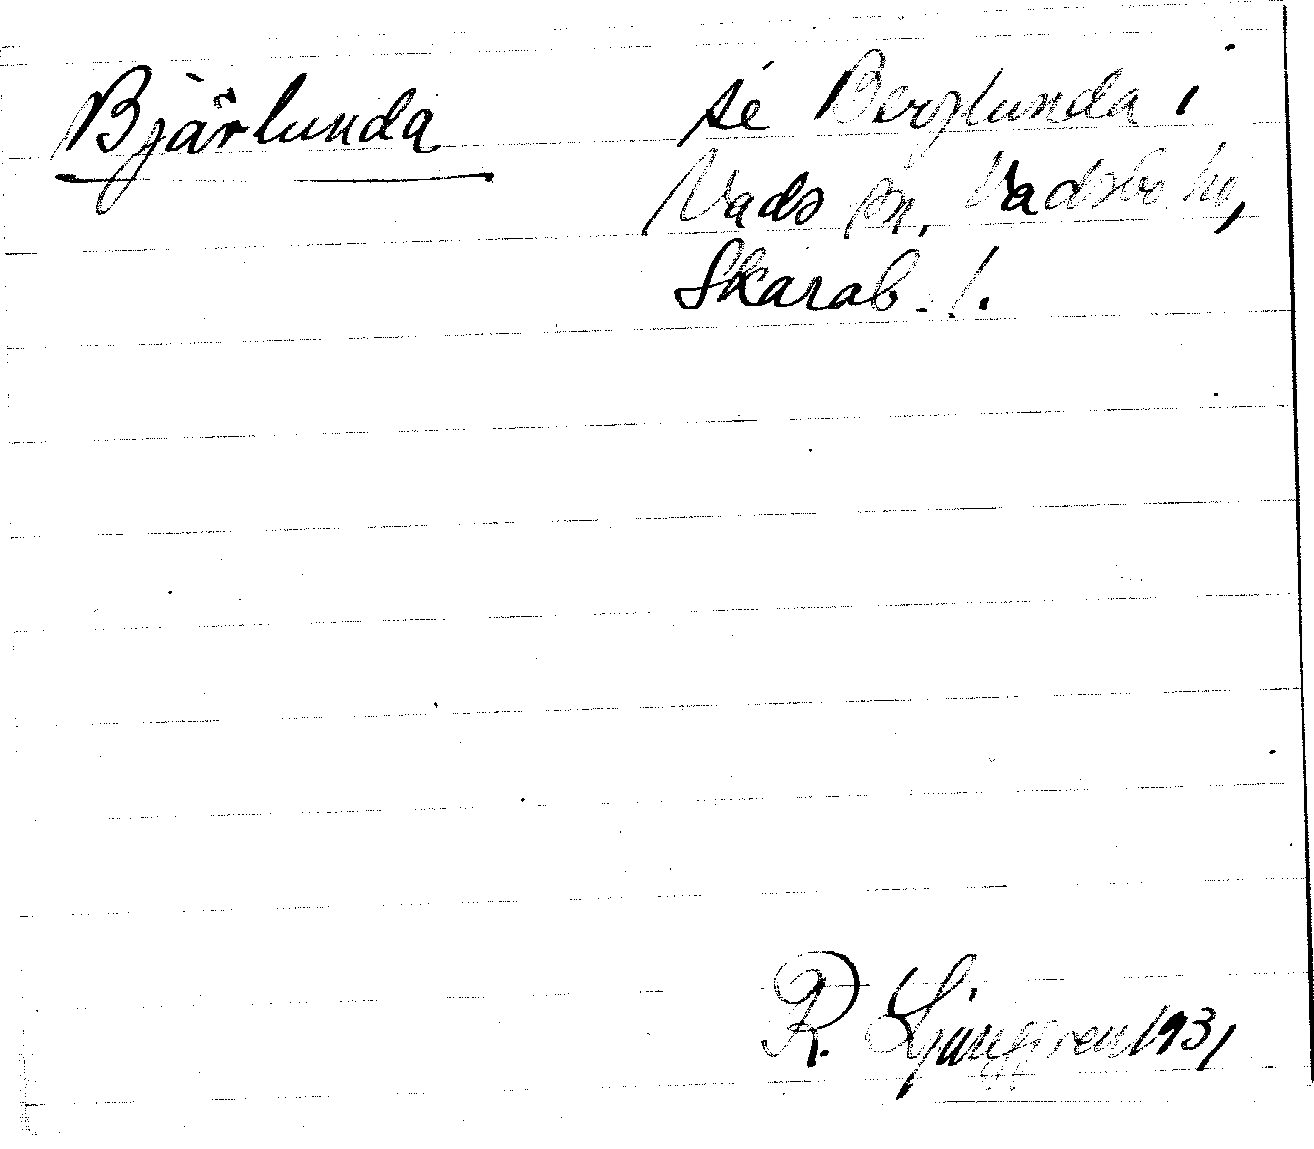 Bjärlunda
se Berglunda i
Vads sn, Vadsbo hd,
Skarab. l.
R. Ljunggren 1931